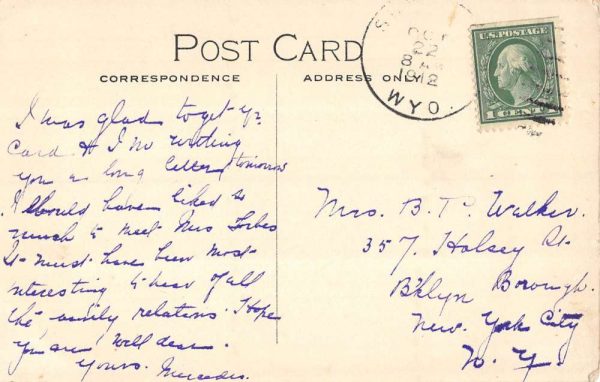 POST CARD
CORRESPONDENCE
ADDRESS ONLY
OCT
22
8 A
1912
WYO.
U.S. POSTAGE
1 CENT
I was glad to get yr
Card & I'm writing
you a long letter tomorrow
I should have liked so
much to meet Mrs Forbes
It must have been most
interesting to hear of all
the family relations. Hope
you are well dear.
Yours. Mercedes.
Mrs. B. T. Walker.
357. Halsey St.
B'klyn Borough.
New York City
N. Y.